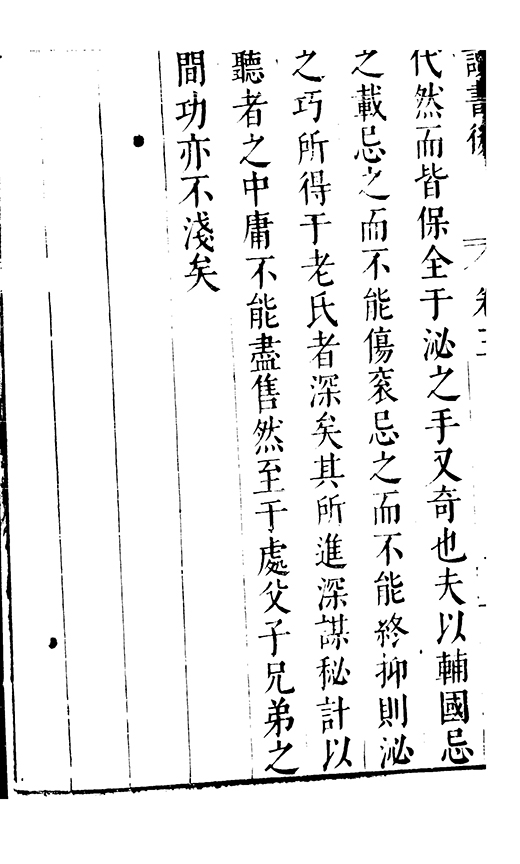 讀書後 卷三
代然而皆保全于泌之手又奇也夫以輔國忌
之載忌之而不能傷衮忌之而不能終抑則泌
之巧所得于老氏者深矣其所進深謀秘計以
聽者之中庸不能盡售然至于處父子兄弟之
間功亦不淺矣